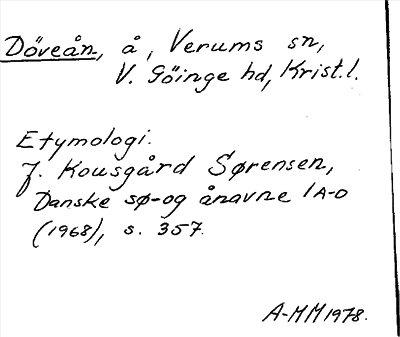 Döveån, å, Verums sn,
V. Göinge hd, Krist.l.
Etymologi.
J. Kousgård Sørensen,
Danske sø-og ånavne 1 A-D
(1968), s. 357.
A-MM 1978.